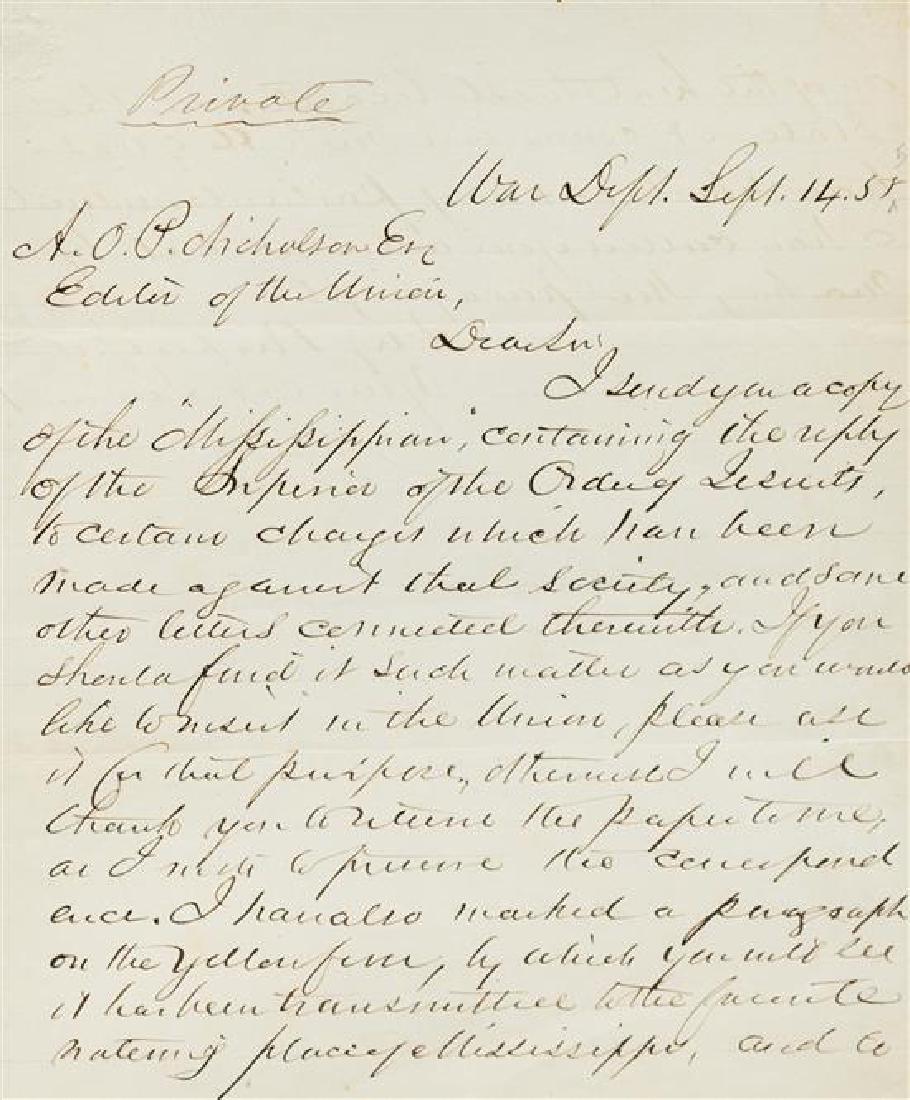 Private
War Dept. Sept. 14. 5
A. O. P. Nicholson Esq
Editor of the Union,
Dear Sir
I send you a copy
of the "Mississippian", containing the reply
of the Superior of the Order of Jesuits,
to certain charges which have been
made against that society, and some
other letters connected therewith. If you
should find it such matter as you would
like to insert in the Union, please use
it for that purpose, otherwise I will
thank you to return the paper to me,
as I wish to preserve the correspond
ence. I have also marked a paragraph
on the Yellow fever, by which you will see
it has been transmitted to the favorite
watering place of Mississippi, and a